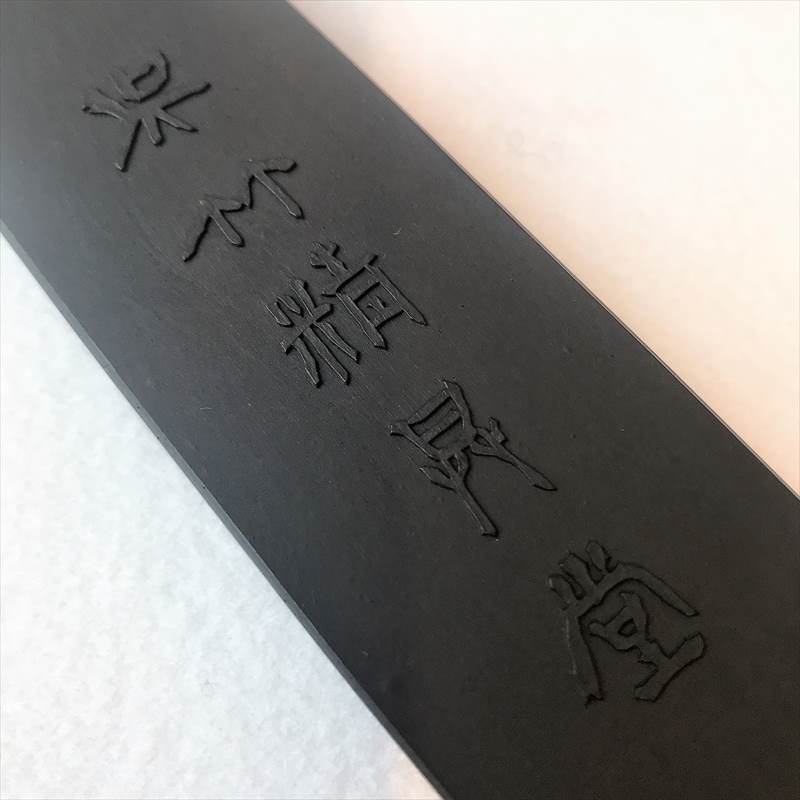 呉竹精昇堂